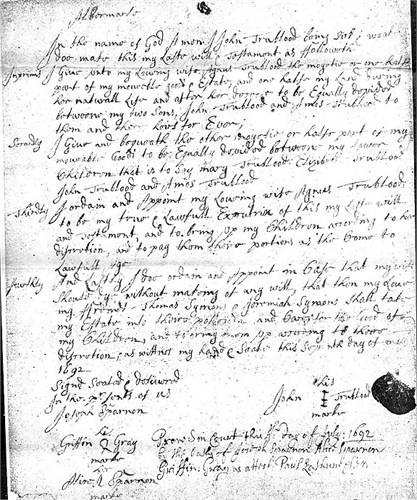 Albemarle
In the name of God Amen I John Trublood being sick & weak
I doe make this my Laste will & Testament as followeth
Inprimis I Give unto my Loving wife Agnus Trublood the mogetie or one halfe
part of my moveable goods & Estate, and one halfe my Land during
her naturall Life and after her to be Equally devided
betweene my two Sons, John Trublood and Amos Trublood to
them and their for Ever
Secondly I Give and bequeath the other mogetie or halfe part of my
moveable Goods to be Equally devided betweene my
Children that is to say mary Trublood Elizabeth Trublood
John Trublood and Amos Trublood
Thirdly I ordain and Appoint my Loving wife Agnus Trublood
to be my true & Lawfull Executrix of this my Laste will
and Testament, and to bring up my Children according to her
discretion, and to pay them their portions as the Come to
Lawfull Age
fourthly And Lastly I doe ordain and Appoint in Case that my wife
should without making of any will, that then my
my friends Thomas Symons & Jeremiah Symons shall take
my Estate into their and for the Good of
my Children, and to bring them up according to there
discretion, as witnes my hand & Seale this day of
1692
Signd Sealed delivered
In the presents of us
Joseph Sparnon
his
John Trublood
marke
his
Griffin Gray
marke
her
Alice Sparnon
marke
Proved in Court this day of July: 1692
by the oaths of Joseph Sparnon Alice Sparnon
Griffin: Gray as attest Paul